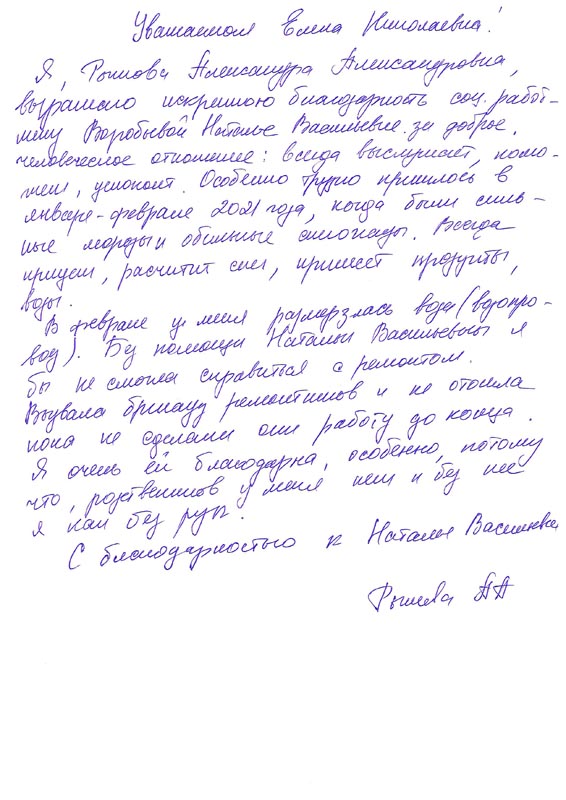 Уважаемая Елена Николаевна!
Я, Рыжова Александра Александровна,
выражаю искреннюю благодарность соц. работ-
нику Воробьёвой Наталье Васильевне за доброе,
человеческое отношение: всегда выслушает, помо-
жет, успокоит. Особенно трудно пришлось в
январе-феврале 2021 года, когда были силь-
ные морозы и обильные снегопады. Всегда
придет, расчистит снег, принесёт продукты,
воды.
В феврале у меня размерзлась вода (водопро-
вод). Без помощи Натальи Васильевны я
бы не смогла справиться с ремонтом.
Вызвала бригаду ремонтников и не отошла
пока не сделали они работу до конца.
Я очень ей благодарна, особенно, потому
что, родственников у меня нет и без неё
я как без рук.
С благодарностью к Наталье Васильевне
АА